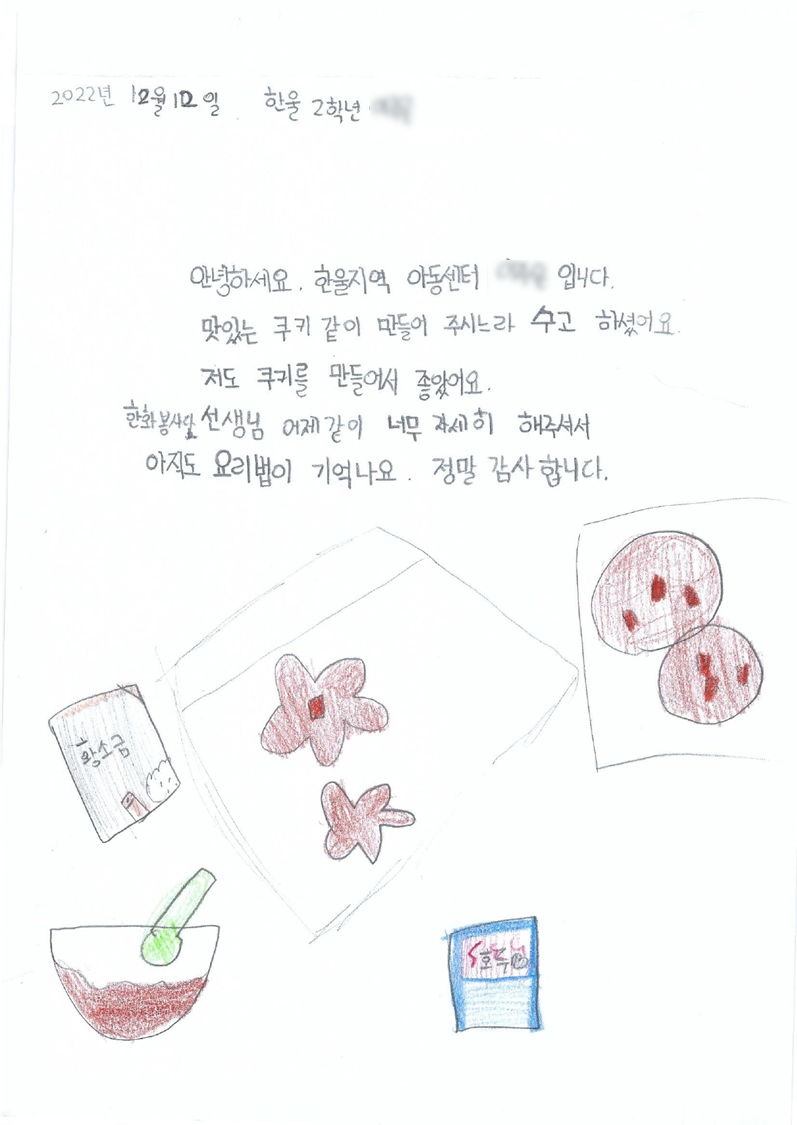 2022년 12월 12일 한울 2학년
안녕하세요. 한울지역 아동센터 입니다.
맛있는 쿠키 같이 만들어 주시느라 수고 하셨어요.
저도 쿠키를 만들어서 좋았어요.
한화봉사단 선생님 어제같이 너무 자세히 해주셔서
아직도 요리법이 기억나요. 정말 감사합니다.
황소금